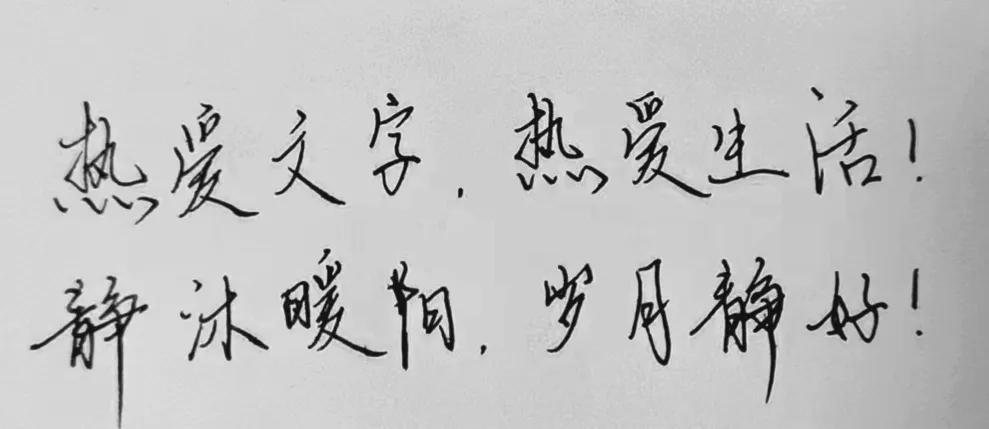 热爱文字,热爱生活!
静沐暖阳,岁月静好!